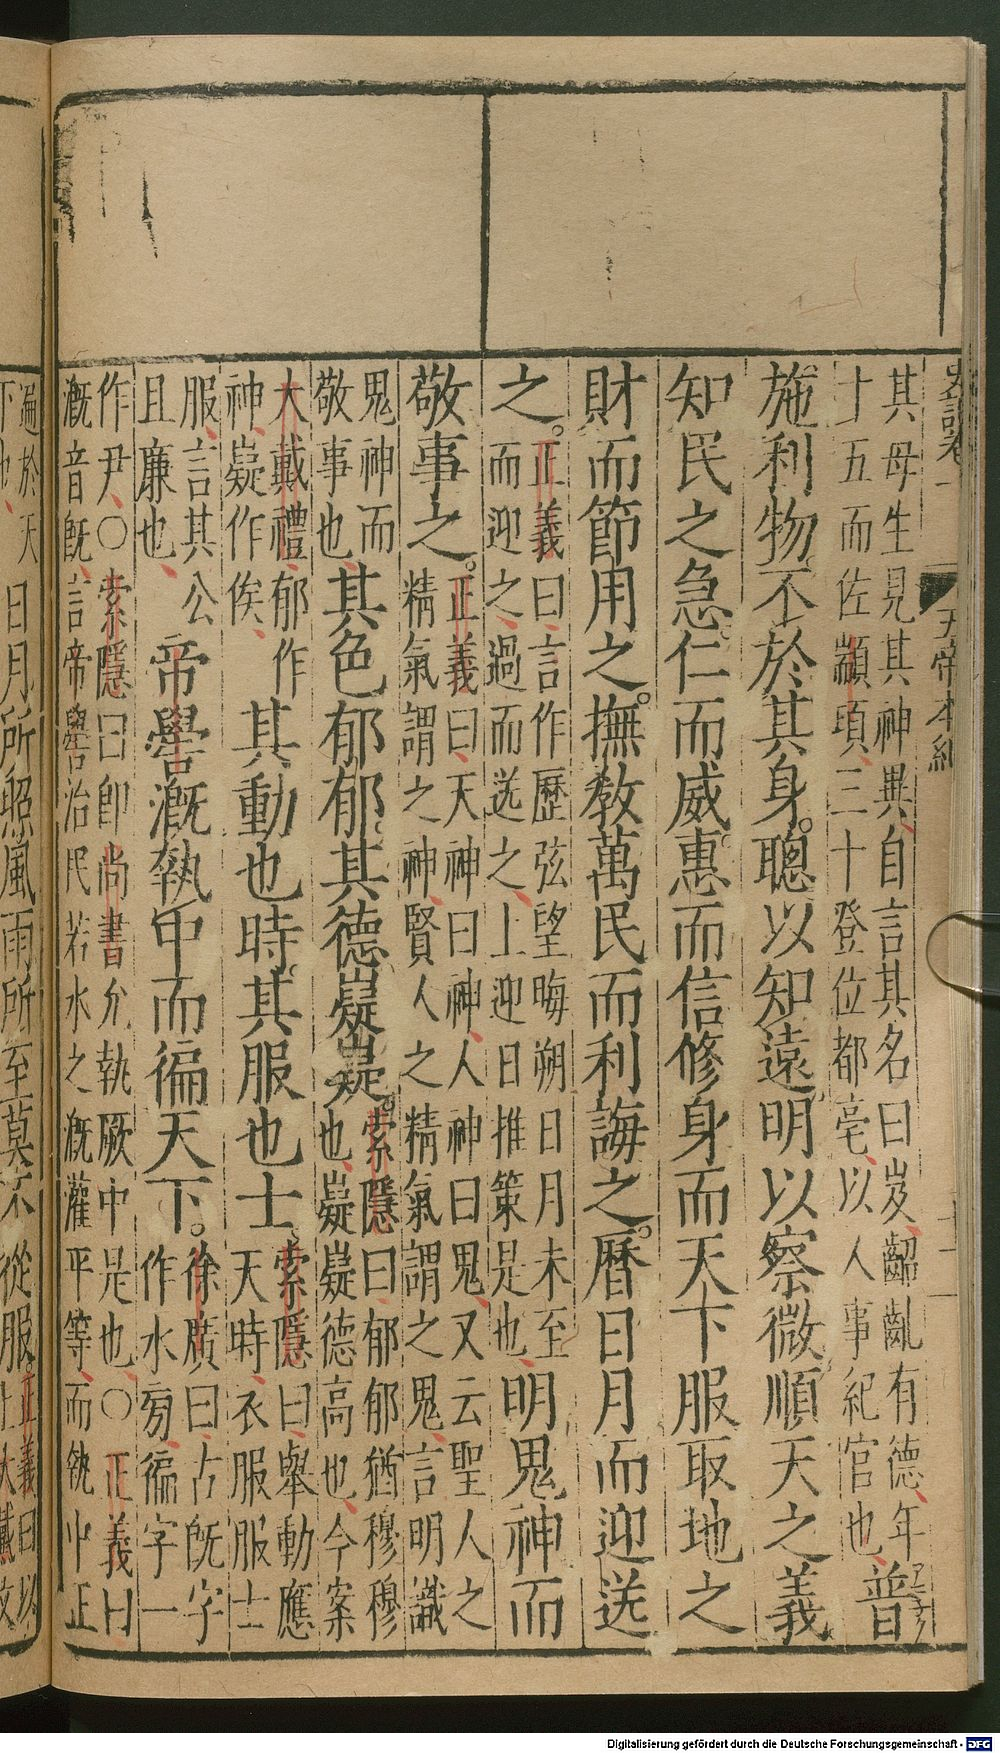 史記卷一 五帝本紀 十一
其母生見其神異自言其名曰岌齠齔有德年
十五而佐顓頊三十登位都亳以人事紀官也
普
施利物不於其身聰以知遠明以察微順天之義
知民之急仁而威惠而信修身而天下服取地之
財而節用之撫教萬民而利誨之曆日月而迎送
之
正義曰言作歷弦望晦朔日月未至
而迎之過而送之上迎日推策是也
明鬼神而
敬事之
正義曰天神曰神人神曰鬼又云聖人之
精氣謂之神賢人之精氣謂之鬼言明識
鬼神而
敬事也
其色郁郁其德嶷嶷
索隱曰郁郁猶穆穆
也嶷嶷德高也今案
大戴禮郁作
神嶷作俟
其動也時其服也士
索隱曰舉動應
天時衣服服士
服言其公
且廉也
帝嚳溉執中而徧天下
徐廣曰古旣字
作水旁徧字一
作尹〇索隱曰卽尚書允執厥中是也〇正義曰
溉音旣言帝嚳治民若水之溉灌平等而執中正
遍於天
下也
日月所照風雨所至莫不從服
正義曰以
上大戴文
Digitalisierung gefördert durch die Deutsche Forschungsgemeinschaft - DFG